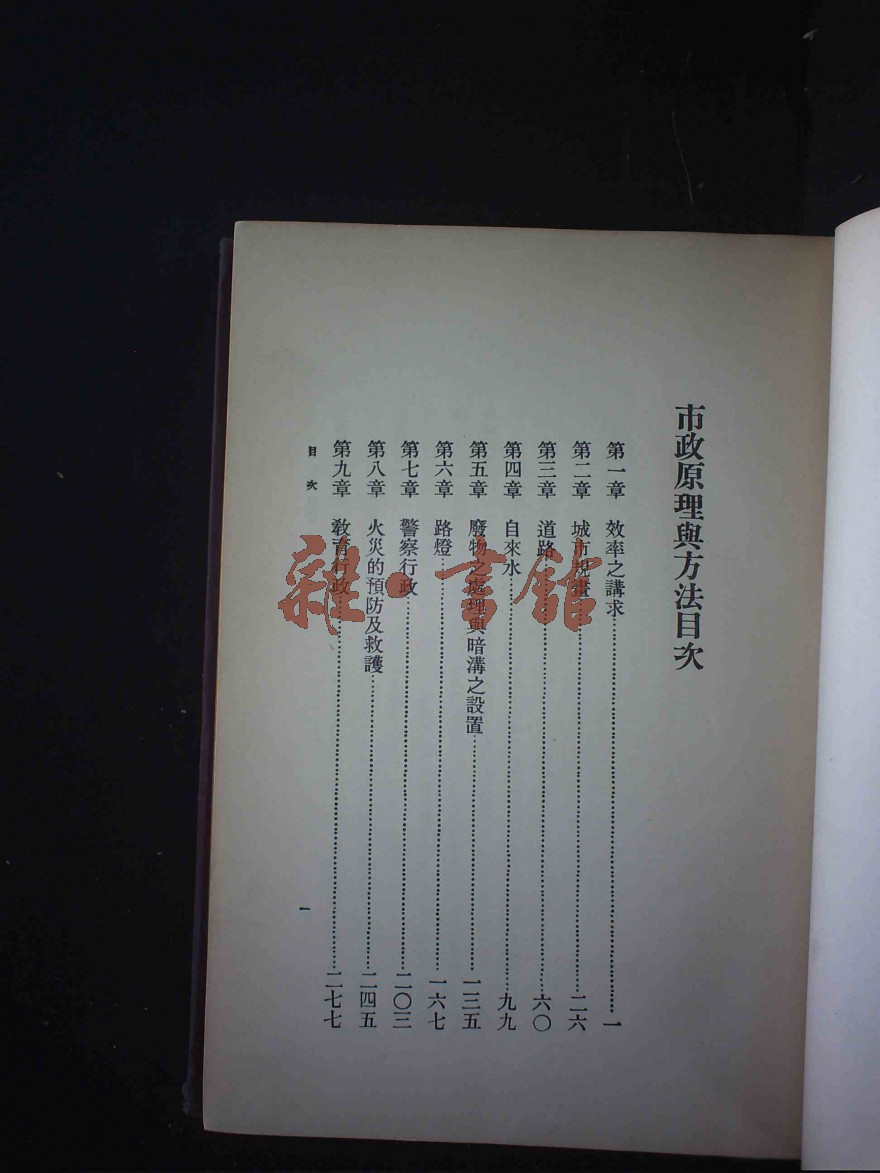 市政原理與方法目次
第一章　效率之講求……一
第二章　城市規畫……二六
第三章　道路……六〇
第四章　自來水……九九
第五章　廢物之處理與暗溝之設置……一三五
第六章　路燈……一六七
第七章　警察行政……二〇三
第八章　火災的預防及救護……二四五
第九章　教育行政……二七七
目次
一
雜·書館